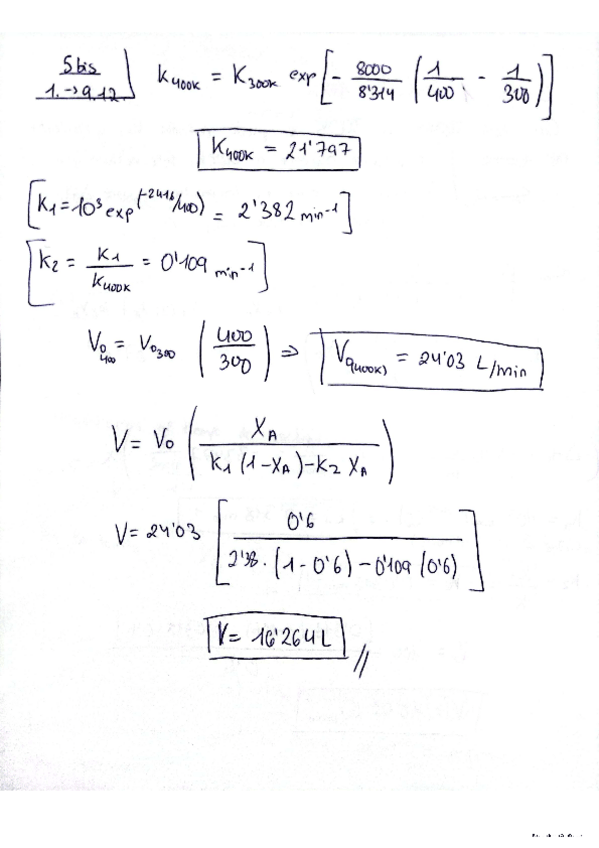 5 bis
1.→9.12. K400K = K300K exp[- 8000/8'314 (1/400 - 1/300)]
K400K = 21'797
[K1 = 10³ exp(-2416/400) = 2'382 min-1]
[K2 = K1/K400K = 0'109 min-1]
V0 400 = V0 300 (400/300) ⇒ V0(400K) = 24'03 L/min
V = V0 (XA / K1 (1-XA) - K2 XA)
V = 24'03 [0'6 / 2'38 · (1 - 0'6) - 0'109 (0'6)]
V = 16'264 L //